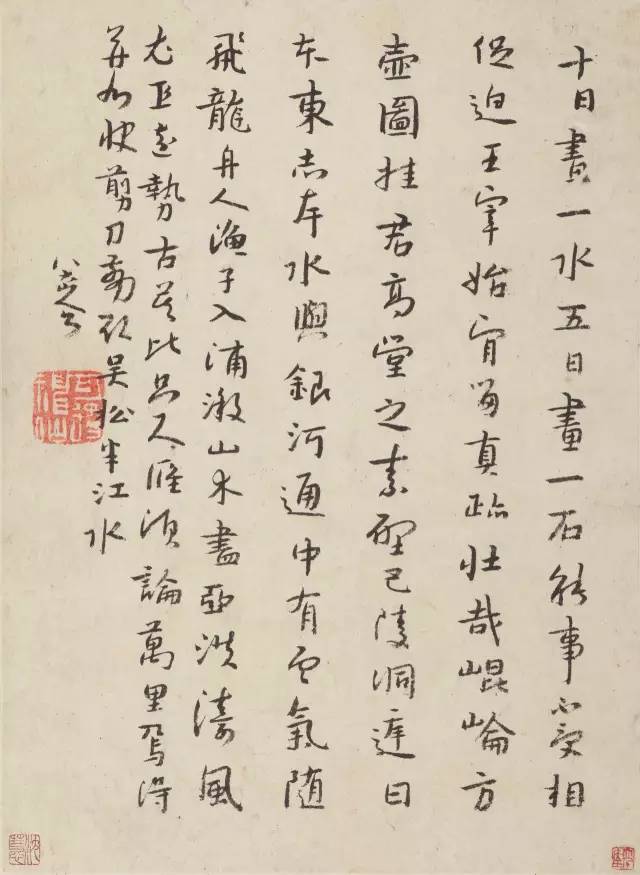 十日畫一水五日畫一石能事不受相
促迫王宰始肎留真跡壯哉崐崘方
壺圖挂君高堂之素壁巴陵洞庭日
本東赤岸水與銀河通中有雲氣隨
飛龍舟人漁子入浦漵山木盡亞洪濤風
尤工遠勢古莫比咫尺應須論萬里焉得
并州快剪刀剪取吳松半江水
八大山人